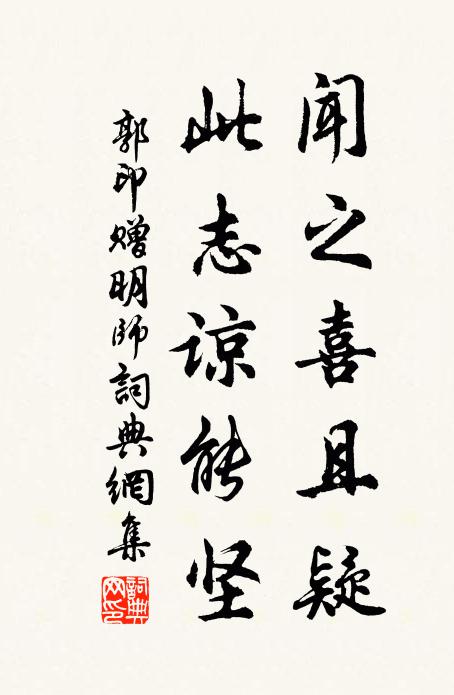 闻之喜且疑
此志谅能坚
郭印赠明师詞典網集
詞典网印